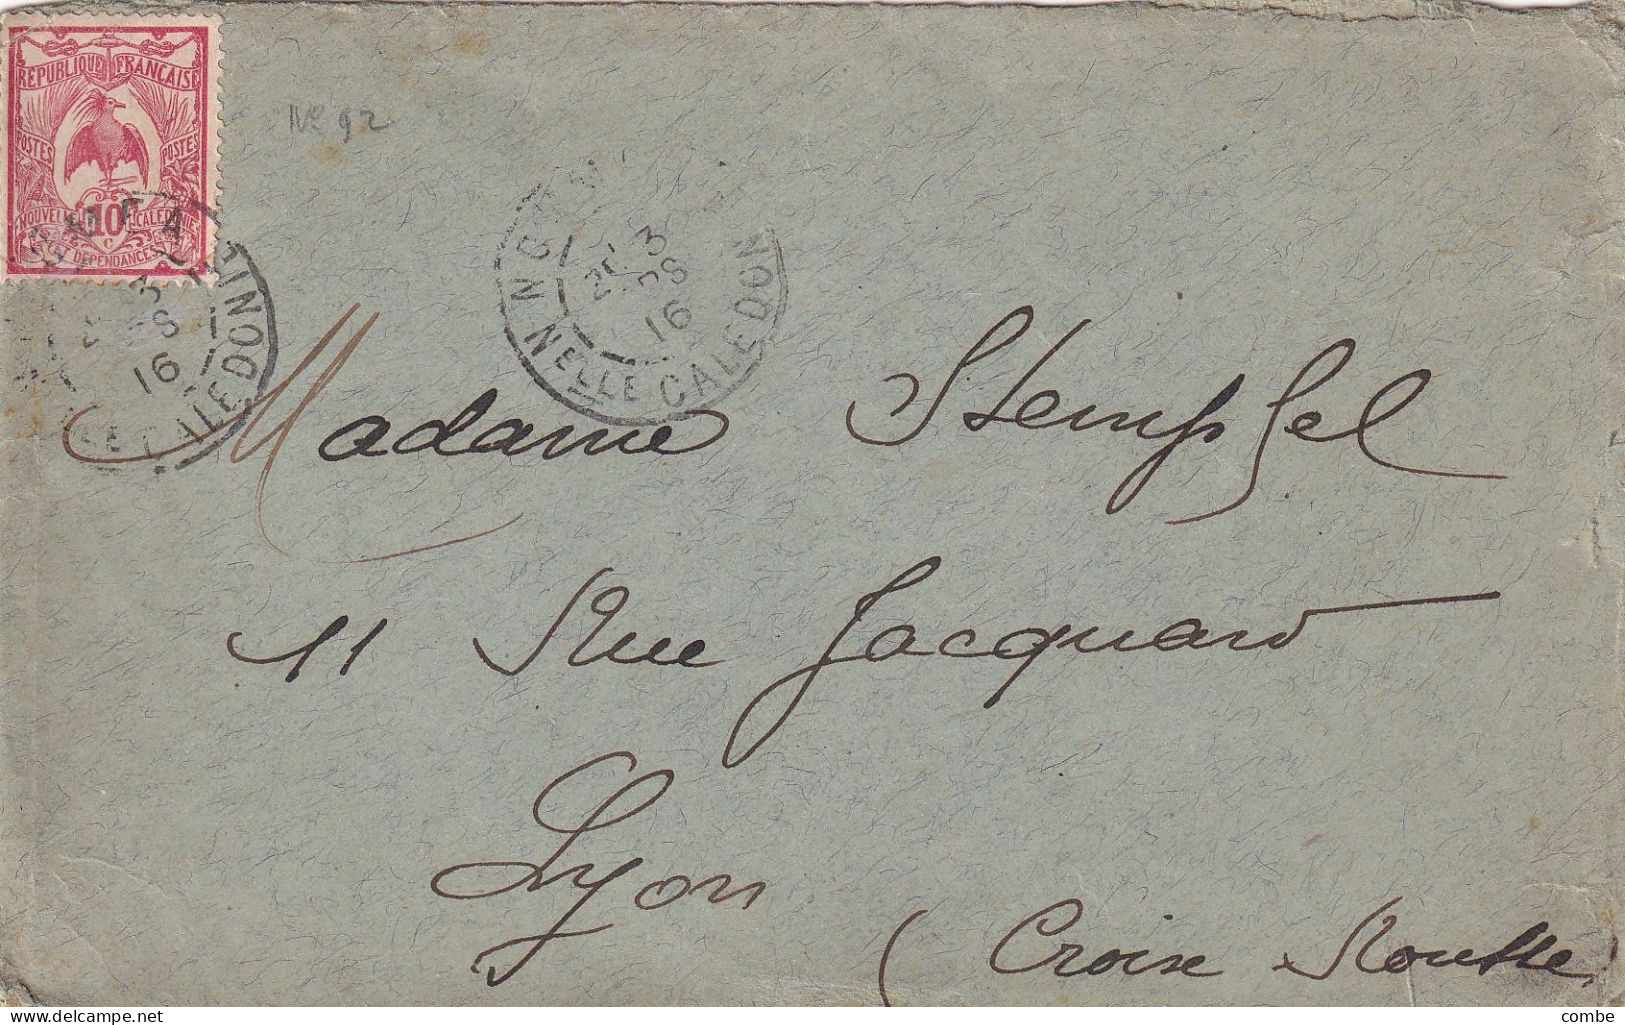 RÉPUBLIQUE FRANÇAISE
POSTES POSTES
10
C
NOUVELLE CALÉDONIE
ET DÉPENDANCES
No 92
3
16
CALEDON
3
16
NELLE CALEDON
Madame Stempfel
11 Rue Jacquard
Lyon
(Croix Rousse)
delcampe.net
combe